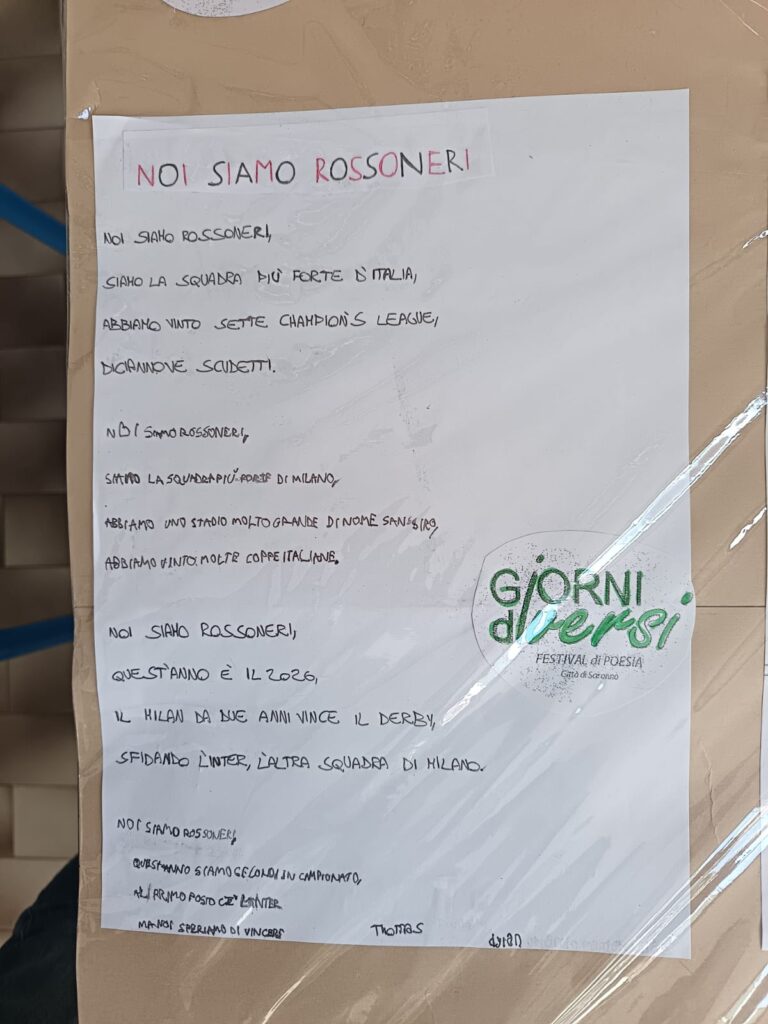 NOI SIAMO ROSSONERI
NOI SIAMO ROSSONERI,
SIAMO LA SQUADRA PIÙ FORTE D'ITALIA,
ABBIAMO VINTO SETTE CHAMPION'S LEAGUE,
DICIANNOVE SCUDETTI.
NOI SIAMO ROSSONERI,
SIAMO LA SQUADRA PIÙ FORTE DI MILANO,
ABBIAMO UNO STADIO MOLTO GRANDE DI NOME SAN SIRO,
ABBIAMO VINTO MOLTE COPPE ITALIANE.
NOI SIAMO ROSSONERI,
QUEST'ANNO È IL 2026,
IL MILAN DA DUE ANNI VINCE IL DERBY,
SFIDANDO L'INTER, L'ALTRA SQUADRA DI MILANO.
NOI SIAMO ROSSONERI,
QUEST'ANNO SIAMO SECONDI IN CAMPIONATO,
AL PRIMO POSTO C'E' L'INTER
MA NOI SPERIAMO DI VINCERE
THOMAS
GIORNI
diversi
FESTIVAL di POESIA
Città di Saronno